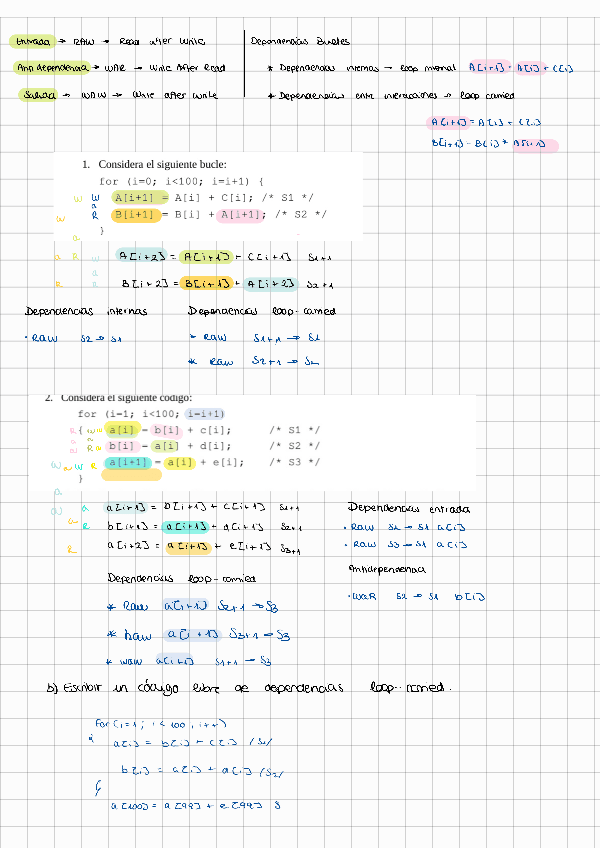 Entrada → RAW → Read after Write
Antidependencia → WAR → Write After Read
Salida → WAW → Write after write
Dependencias Bucles
* Dependencias internas → loop internal A[i+1] = A[i] + C[i]
* Dependencias entre interacciones → loop carried
A[i+1] = A[i] + C[i]
B[i+1] = B[i] + A[i+1]
1. Considera el siguiente bucle:
for (i=0; i<100; i=i+1) {
W W A[i+1] = A[i] + C[i]; /* S1 */
W R B[i+1] = B[i] + A[i+1]; /* S2 */
}
A[i+2] = A[i+1] + C[i+1] S1+1
B[i+2] = B[i+1] + A[i+2] S2+1
Dependencias internas
· RAW S2 → S1
Dependencias loop-carried
* RAW S1+1 → S1
* RAW S2+1 → S2
2. Considera el siguiente código:
for (i=1; i<100; i=i+1)
{ a[i] = b[i] + c[i]; /* S1 */
b[i] = a[i] + d[i]; /* S2 */
a[i+1] = a[i] + e[i]; /* S3 */
}
a[i+1] = b[i+1] + c[i+1] S1+1
b[i+1] = a[i+1] + d[i+1] S2+1
a[i+2] = a[i+1] + e[i+1] S3+1
Dependencias entrada
· RAW S2 → S1 a[i]
· RAW S3 → S1 a[i]
Antidependencia
· WAR S2 → S1 b[i]
Dependencias loop-carried
* Raw a[i+1] S2+1 → S3
* Raw a[i+1] S3+1 → S3
* waw a[i+1] S1+1 → S3
b) Escribir un código libre de dependencias loop-carried.
For (i=1; i<100, i++)
{ a[i] = b[i] + c[i] /S1/
b[i] = a[i] + d[i] /S2/
}
a[100] = a[99] + e[99]